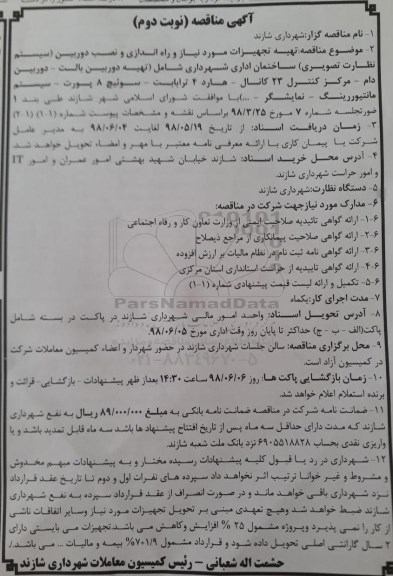 آگهی مناقصه (نوبت دوم)
۱- نام مناقصه گزار:شهرداری شازند
۲- موضوع مناقصه:تهیه تجهیزات مورد نیاز و راه اندازی و نصب دوربین (سیستم
نظارت تصویری) ساختمان اداری شهرداری شامل (تهیه دوربین بالت - دوربین
دام - مرکز کنترل ۲۳ کانال - هارد ۴ ترابایت - سوئیچ ۸ پورت - سیستم
مانتیوررینگ - نمایشگر - ...)با موافقت شورای اسلامی شهر شازند طی بند ۱
صورتجلسه شماره ۷ مورخ ۹۸/۳/۲۵ براساس نقشه و مشخصات پیوست شماره (۱-۱) (۱-۲)
۳- زمان دریافت اسناد: از تاریخ ۹۸/۰۵/۱۹ لغایت ۹۸/۰۶/۰۴ به مدیر عامل
شرکت یا پیمان کاری با ارائه معرفی نامه معتبر با مهر و امضاء تحویل خواهد شد
۴- آدرس محل خرید اسناد: شازند خیابان شهید بهشتی امور عمران و امور IT
و امور حراست شهرداری شازند.
۵- دستگاه نظارت:شهرداری شازند
۶- مدارک مورد نیازجهت شرکت در مناقصه:
۶-۱- ارائه گواهی تائیدیه صلاحیت ایمنی از وزارت تعاون کار و رفاه اجتماعی
۶-۲- ارائه گواهی صلاحیت پیمانکاری از مراجع ذیصلاح
۶-۳- ارائه گواهی نامه ثبت نام در نظام مالیات بر ارزش افزوده
۶-۴- ارائه گواهی تاییدیه از حراست استانداری استان مرکزی
۶-۵- تکمیل و ارائه لیست قیمت پیشنهادی شماره (۱-۱)
۷- مدت اجرای کار:یکماه
۸- آدرس تحویل اسناد: واحد امور مالی شهرداری شازند در پاکت در بسته شامل
پاکت(الف - ب - ج) حداکثر تا پایان روز وقت اداری مورخ ۹۸/۰۶/۰۵.
۹- محل برگزاری مناقصه: سالن جلسات شهرداری شازند در حضور شهردار و اعضاء کمیسیون معاملات شرکت
در کمیسیون آزاد است.
۱۰- زمان بازگشایی پاکت ها: روز ۹۸/۰۶/۰۶ ساعت ۱۴:۳۰ بعداز ظهر پیشنهادات - بازگشایی- قرائت و
برنده استعلام اعلام خواهد شد.
۱۱- ضمانت نامه شرکت در مناقصه ضمانت نامه بانکی به مبلغ ۸۹/۰۰۰/۰۰۰ ریال به نفع شهرداری
شازند که مدت دارای حداقل سه ماه پس از تاریخ افتتاح پیشنهاد ها باشد سه ماه قابل تمدید باشد و یا
واریزی نقدی بحساب ۶۹۰۵۵۱۸۸۲۸ نزد بانک ملت شعبه شازند.
۱۲- شهرداری در رد یا قبول کلیه پیشنهادات رسیده مختار و به پیشنهادات مبهم مخدوش
و مشروط و غیر خوانا ترتیب اثر نخواهد داد سپرده های نفرات اول و دوم تا تاریخ عقد قرارداد
نزد شهرداری باقی خواهد ماند و در صورت انصراف از عقد قرارداد سپرده به نفع شهرداری
شازند ضبط خواهد شد وهیچ تعهدی مبنی بر تحویل تجهیزات مورد نیاز وسایر اتفاقات ناشی
از کار را نمی پذیرد وپروژه مشمول ۲۵ % افزایش وکاهش می باشد تجهیزات می بایستی دارای
۲ سال گارانتی اصلی تحویل داده شود و قرارداد مشمول ۷۰۱/۹% بیمه و مالیات ... می باشد./
حشمت اله شعبانی - رئیس کمیسیون معاملات شهرداری شازند
ParsNamadData